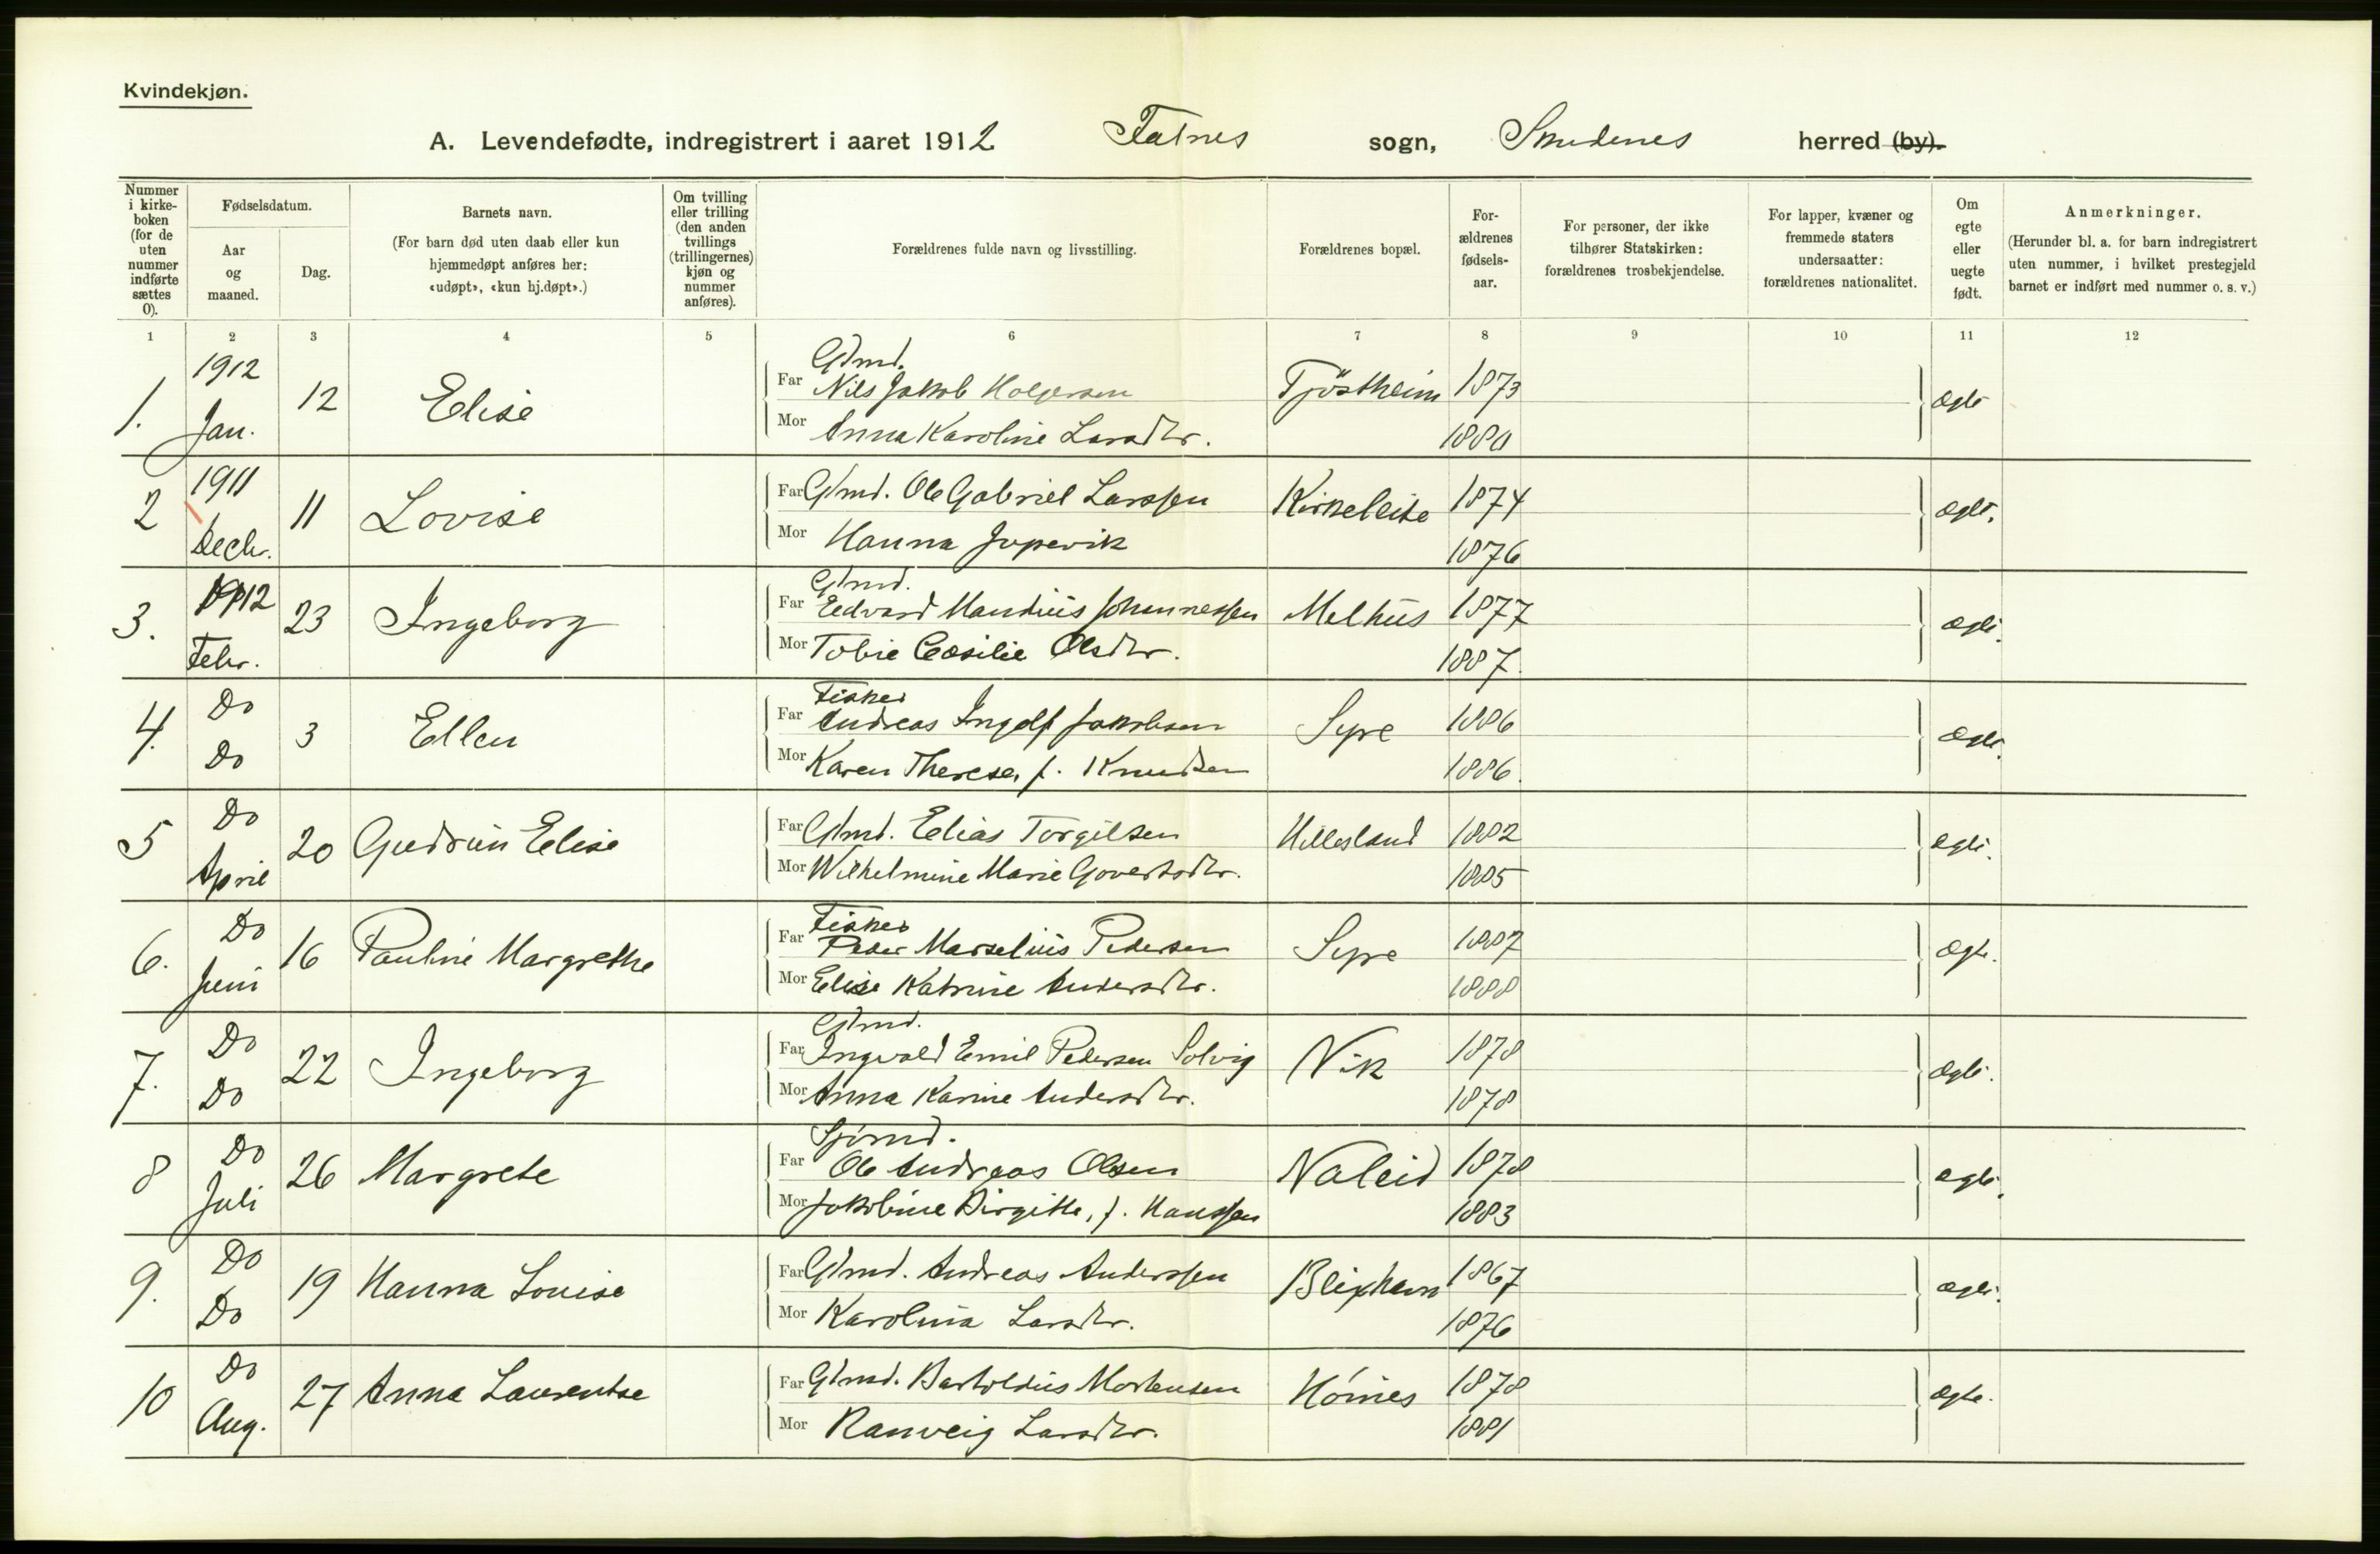 Kvindekjøn.
A. Levendefødte, indregistrert i aaret 1912 Falnes sogn, Skudenes herred (by).
Nummer i kirke-boken (for de uten nummer indførte sættes 0).
Fødselsdatum.
Aar og maaned.
Dag.
Barnets navn.
(For barn død uten daab eller kun hjemmedøpt anføres her: «udøpt», «kun hj.døpt».)
Om tvilling eller trilling (den anden tvillings (trillingernes) kjøn og nummer anføres).
Forældrenes fulde navn og livsstilling.
Forældrenes bopæl.
For-ældrenes fødsels-aar.
For personer, der ikke tilhører Statskirken: forældrenes trosbekjendelse.
For lapper, kvæner og fremmede staters undersaatter: forældrenes nationalitet.
Om egte eller uegte født.
Anmerkninger.
(Herunder bl. a. for barn indregistrert uten nummer, i hvilket prestegjeld barnet er indført med nummer o. s. v.)
1 2 3 4 5 6 7 8 9 10 11 12
1. 1912 Jan. 12 Elise
Gbmd.
Far Nils Jakob Holgersen Tjöstheim 1873 ægte
Mor Anna Karoline Larsdtr. 1880
2 1911 Decbr. 11 Lovise
Far Gbmd. Ole Gabriel Larssen Kirkeleite 1874 ægte.
Mor Hanna 1876
3. 1912 Febr. 23 Ingeborg
Gbmd.
Far Edvard Mandius Johannessen Melhus 1877 ægte.
Mor Tobie Cecilie Olsdtr. 1887.
4. Do Do 3 Ellen
Fisker
Far Andreas Ingolf Jakobsen Syre 1886 ægte.
Mor Karen Therese, f. Knudsen 1886.
5 Do April 20 Gudrun Elise
Far Gbmd. Elias Torgilsen Hillesland 1882 ægte.
Mor Wilhelmine Marie Govertsdtr. 1885
6. Do Juni 16 Pauline Margrethe
Fisker
Far Peder Marselius Pedersen Syre 1887 ægte.
Mor Elise Katrine Andersdtr. 1888
7. Do Do 22 Ingeborg
Gbmd.
Far Ingvald Emil Pedersen Solvig Vik 1878 ægte.
Mor Anna Karine Andersdtr. 1878
8 Do Juli 26 Margrete
Sjömd.
Far Ole Andreas Olsen Naleid 1878 ægte.
Mor Jakobine Birgitte, f. Hanssen 1883
9. Do Do 19 Hanna Louise
Far Gbmd. Andreas Anderssen Blixhavn 1867 ægte.
Mor Karolina Larsdtr. 1876
10 Do Aug. 27 Anna Laurentse
Far Gbmd. Bartoldius Mortensen Hóines 1878 ægte.
Mor Ranveig Larsdtr. 1881